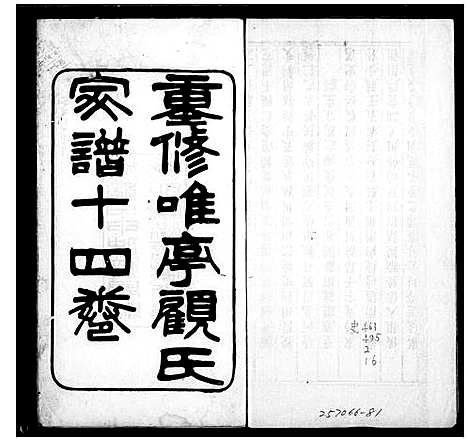 重修唯亭顧氏
家譜十四卷
史
463
495
2
16
257066-81